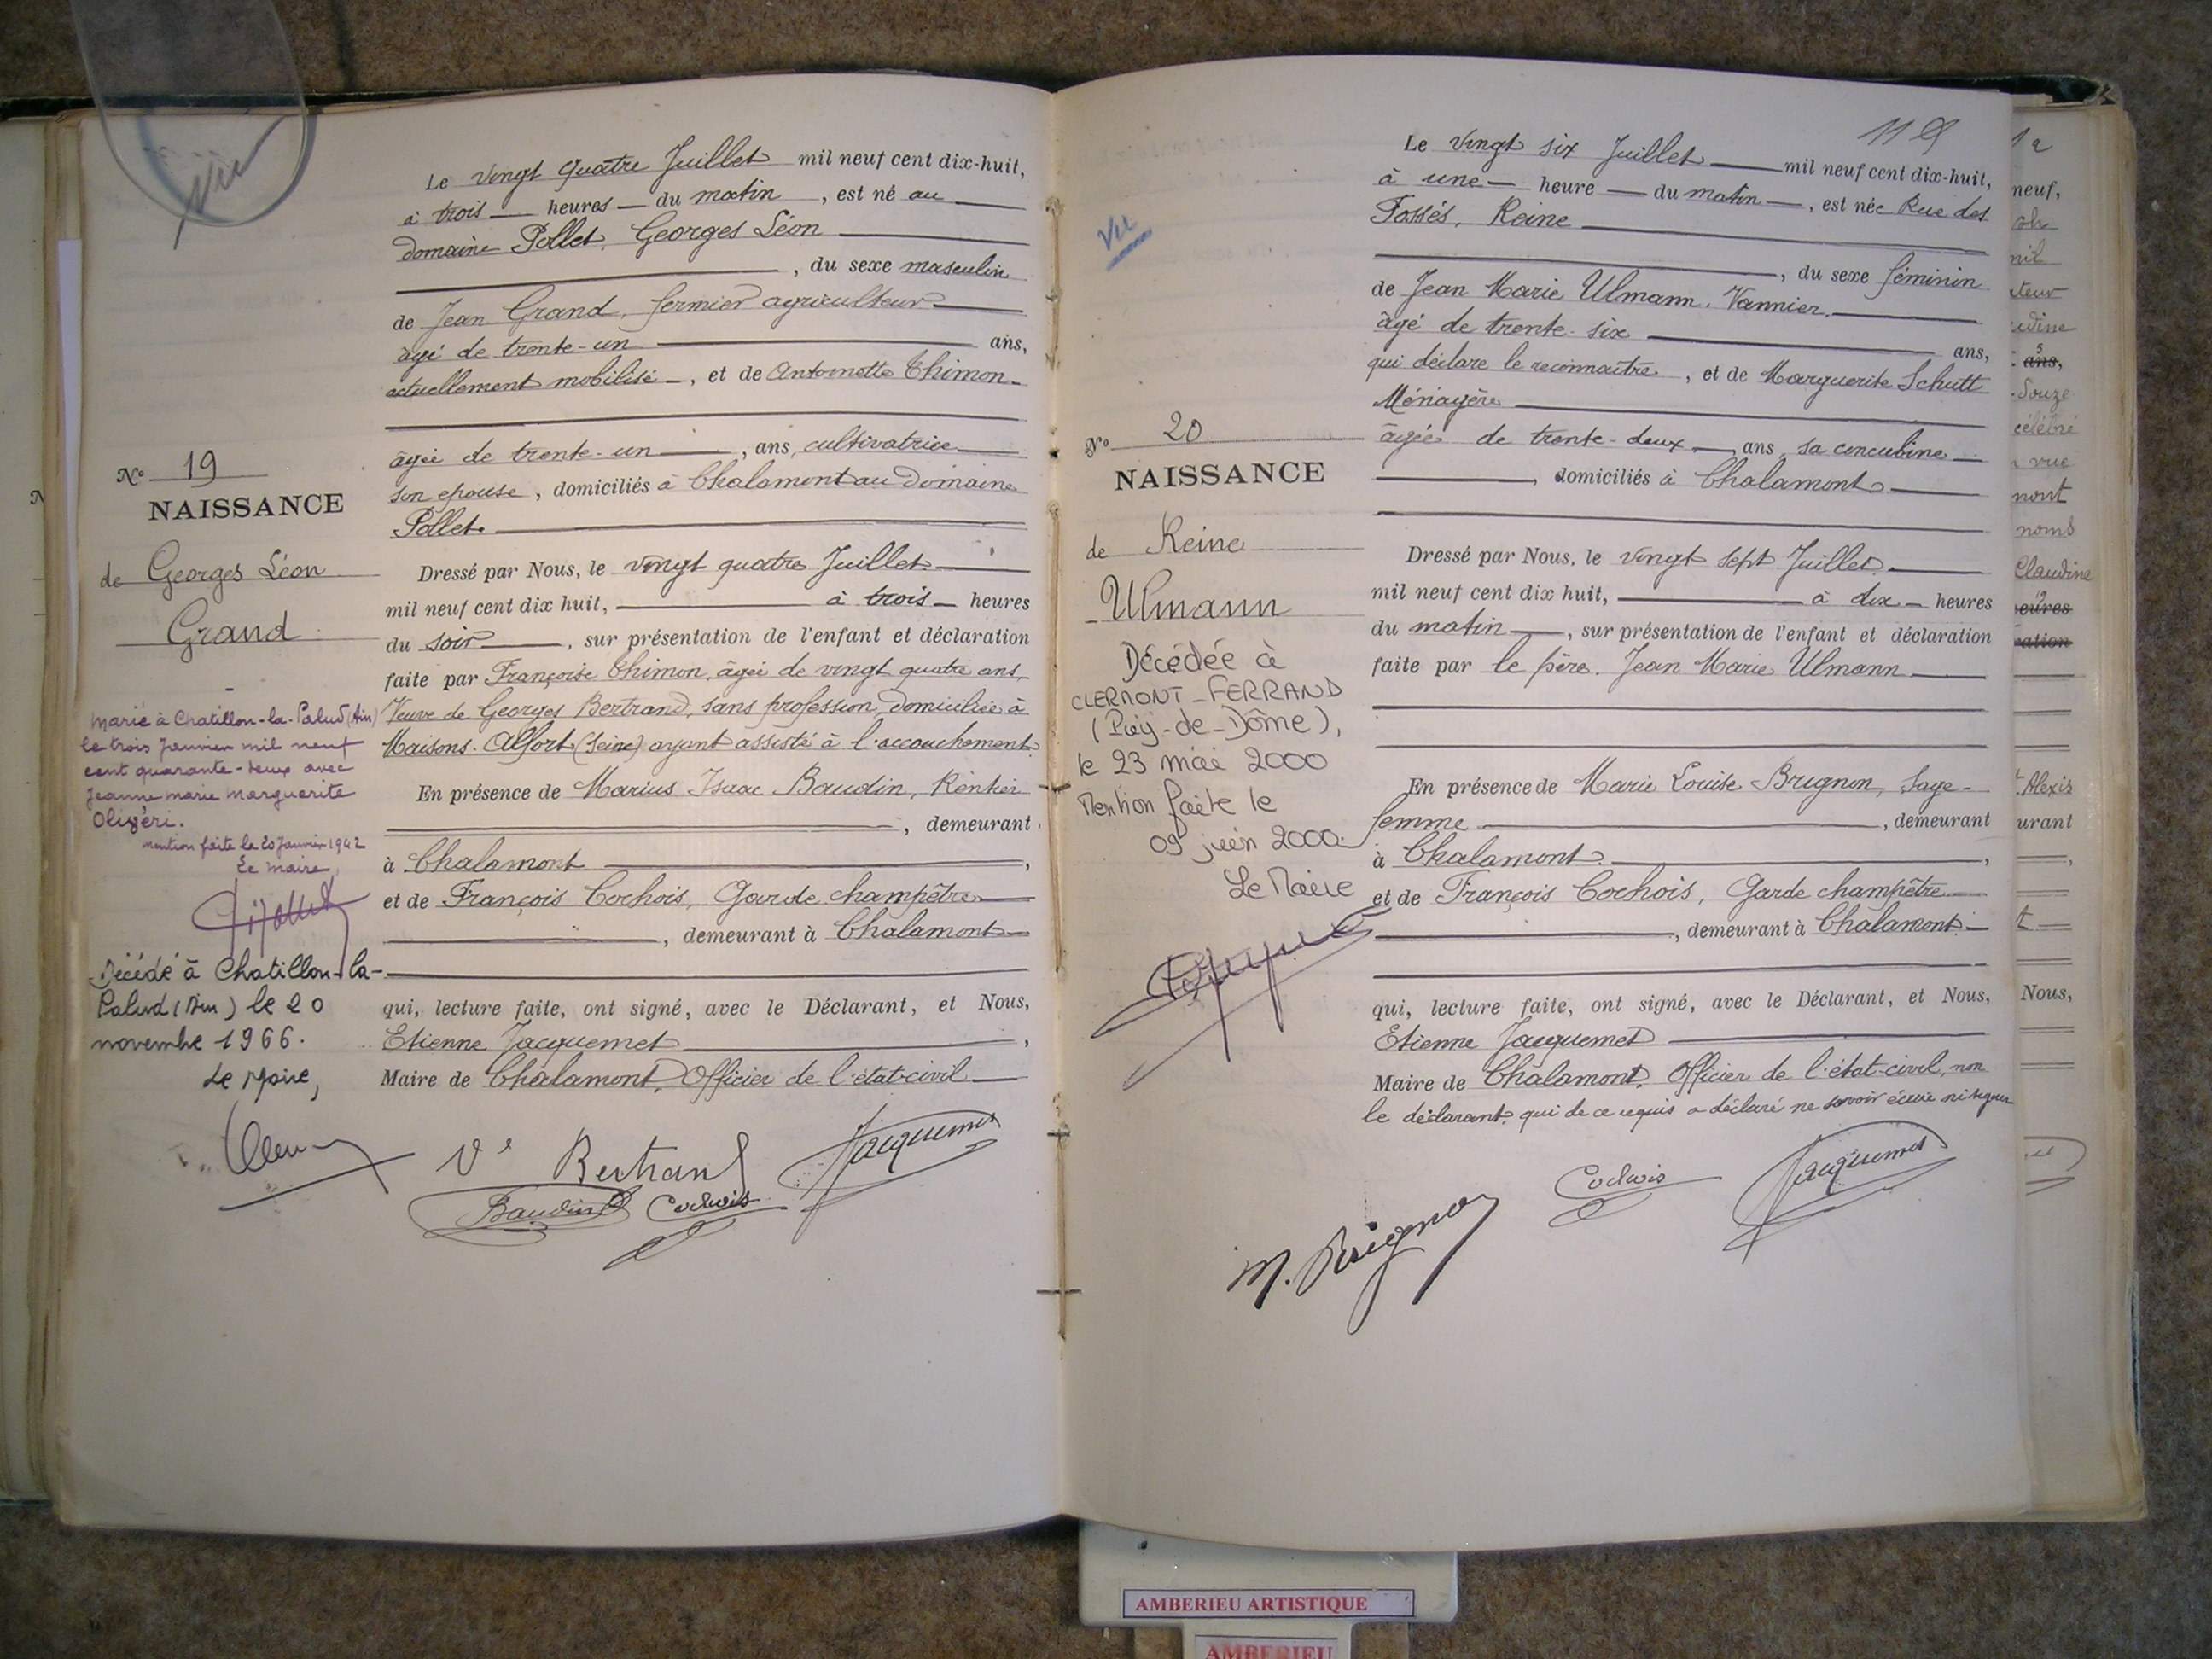 Vu
Le vingt quatre Juillet mil neuf cent dix-huit,
à trois heures du matin, est né au
domaine Pollet, Georges Léon
, du sexe masculin
de Jean Grand, fermier agriculteur
âgé de trente-un ans,
actuellement mobilisé, et de Antoinette Thimon
âgée de trente-un, ans, cultivatrice
son epouse, domiciliés à Chalamont au Domaine
Pollet.
Nº 19
NAISSANCE
de Georges Léon
Grand
Dressé par Nous, le vingt quatre Juillet
mil neuf cent dix huit, à trois heures
du soir, sur présentation de l'enfant et déclaration
faite par Françoise Thimon, âgée de vingt quatre ans,
Veuve de Georges Bertrand, sans profession, domiciliée à
Maisons-Alfort (Seine) ayant assisté à l'accouchement
En présence de Marius Isaac Baudin, Rentier
, demeurant
à Chalamont,
et de François Cochois, Garde champêtre
, demeurant à Chalamont
qui, lecture faite, ont signé, avec le Déclarant, et Nous,
Etienne Jacquemet,
Maire de Chalamont, Officier de l'état-civil
Marié à Chatillon-la-Palud (Ain)
le trois Janvier mil neuf
cent quarante-deux avec
Jeanne marie Marguerite
mention faite le 20 Janvier 1942
Le maire,
Décédé à Chatillon-la-
Palud (Ain) le 20
novembre 1966.
Le Maire,
Vve Bertrand
Jacquemet
Baudin Cochois
119
Le vingt six Juillet mil neuf cent dix-huit,
à une heure du matin, est née Rue des
Fossés, Reine
, du sexe féminin
de Jean Marie Ulmann, Vannier.
âgé de trente-six ans,
qui déclare le reconnaître, et de Marguerite Schutt
Ménagère
âgée de trente-deux ans, sa concubine
, domiciliés à Chalamont
Vu
Nº 20
NAISSANCE
de Reine
Ulmann
Dressé par Nous, le vingt sept Juillet
mil neuf cent dix huit, à dix heures
du matin, sur présentation de l'enfant et déclaration
faite par le père. Jean Marie Ulmann
En présence de Marie Louise Brugnon, Sage-
femme, demeurant
à Chalamont,
et de François Cochois, Garde champêtre
, demeurant à Chalamont
qui, lecture faite, ont signé, avec le Déclarant, et Nous,
Etienne Jacquemet
Maire de Chalamont, Officier de l'état-civil, non
le déclarant, qui de ce requis a déclaré ne savoir écrire ni signer
Décédée à
CLERMONT-FERRAND
(Puy-de-Dôme),
le 23 mai 2000
Mention faite le
09 juin 2000.
Le Maire
M. Brugnon
Cochois
Jacquemet
neuf,
ans,
Souze
célébré
vue
mont
noms
Claudine
Alexis
urant
Nous,
AMBERIEU ARTISTIQUE
AMBERIEU